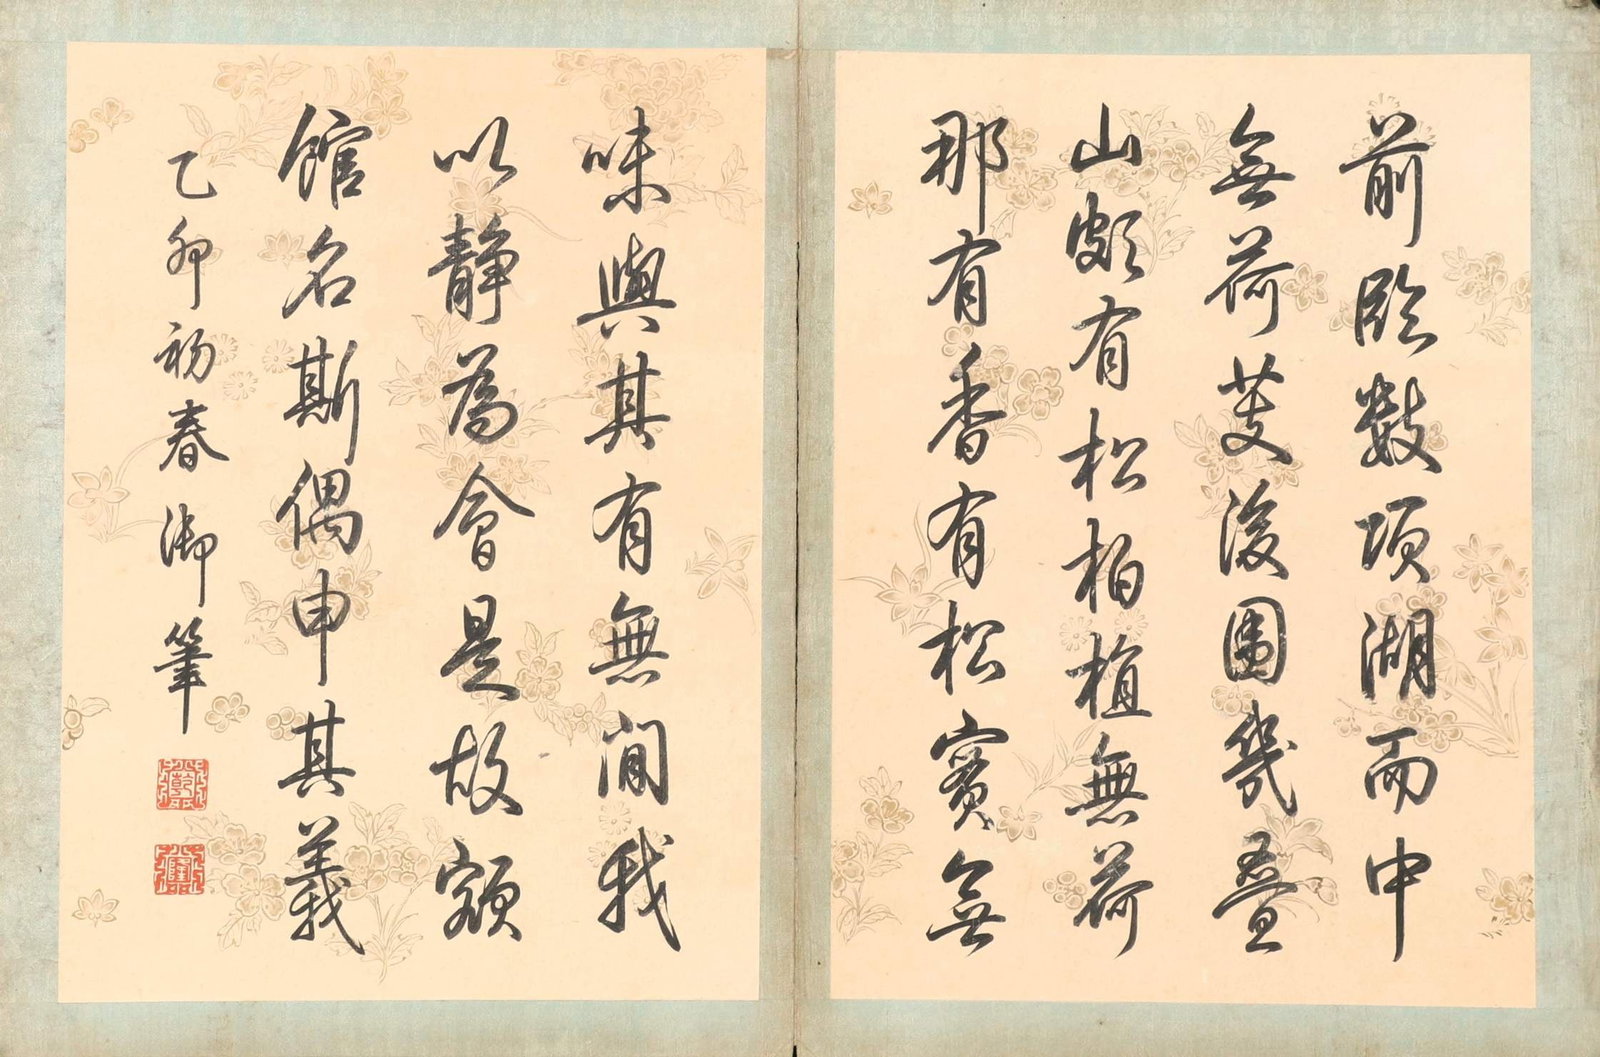 前臨數頃湖而中
無荷芰後圍幾疊
山頗有松柏植無荷
那有香有松實無
味與其有無間我
以静為會是故額
館名斯偶申其義
乙卯初春御筆
乾
隆